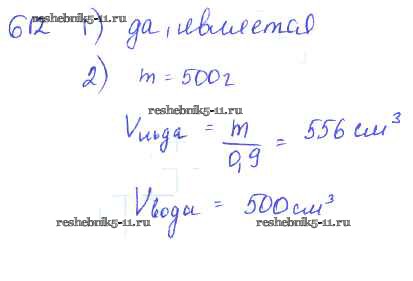 612 1) да, является
reshebnik5-11.ru
2) m = 500 г
reshebnik5-11.ru
Vльда = m/0,9 = 556 см³
Vвода = 500 см³
reshebnik5-11.ru reshebnik5-11.ru